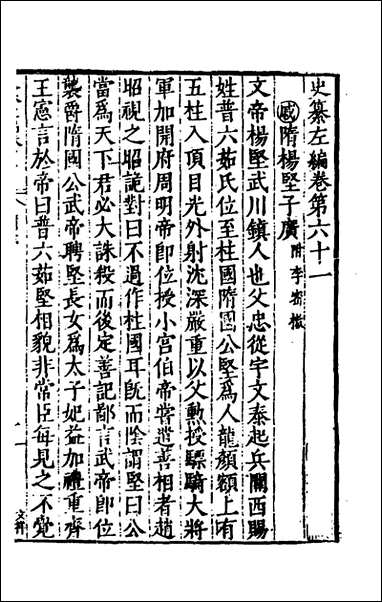 史纂左編卷第六十一
隋楊堅子廣附李密檄
文帝楊堅武川鎮人也父忠從宇文泰起兵關西賜
姓普六茹氏位至柱國隋國公堅爲人龍顏額上有
五柱入頂目光外射沈深嚴重以父勲授驃騎大將
軍加開府周明帝即位授小宮伯帝嘗遣善相者趙
昭視之昭詭對曰不過作柱國耳旣而陰謂堅曰公
當爲天下君必大誅殺而後定善記鄙言武帝即位
襲爵隋國公武帝聘堅長女爲太子妃益加禮重齊
王憲言於帝曰普六茹堅相貌非常臣每見之不覺